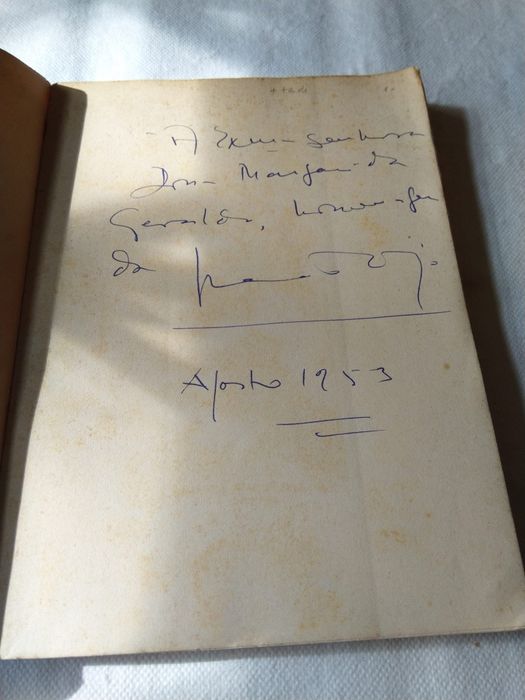 A Exma Senhora
Dona Margarida
Geraldo, homenagem
da
Agosto 1953